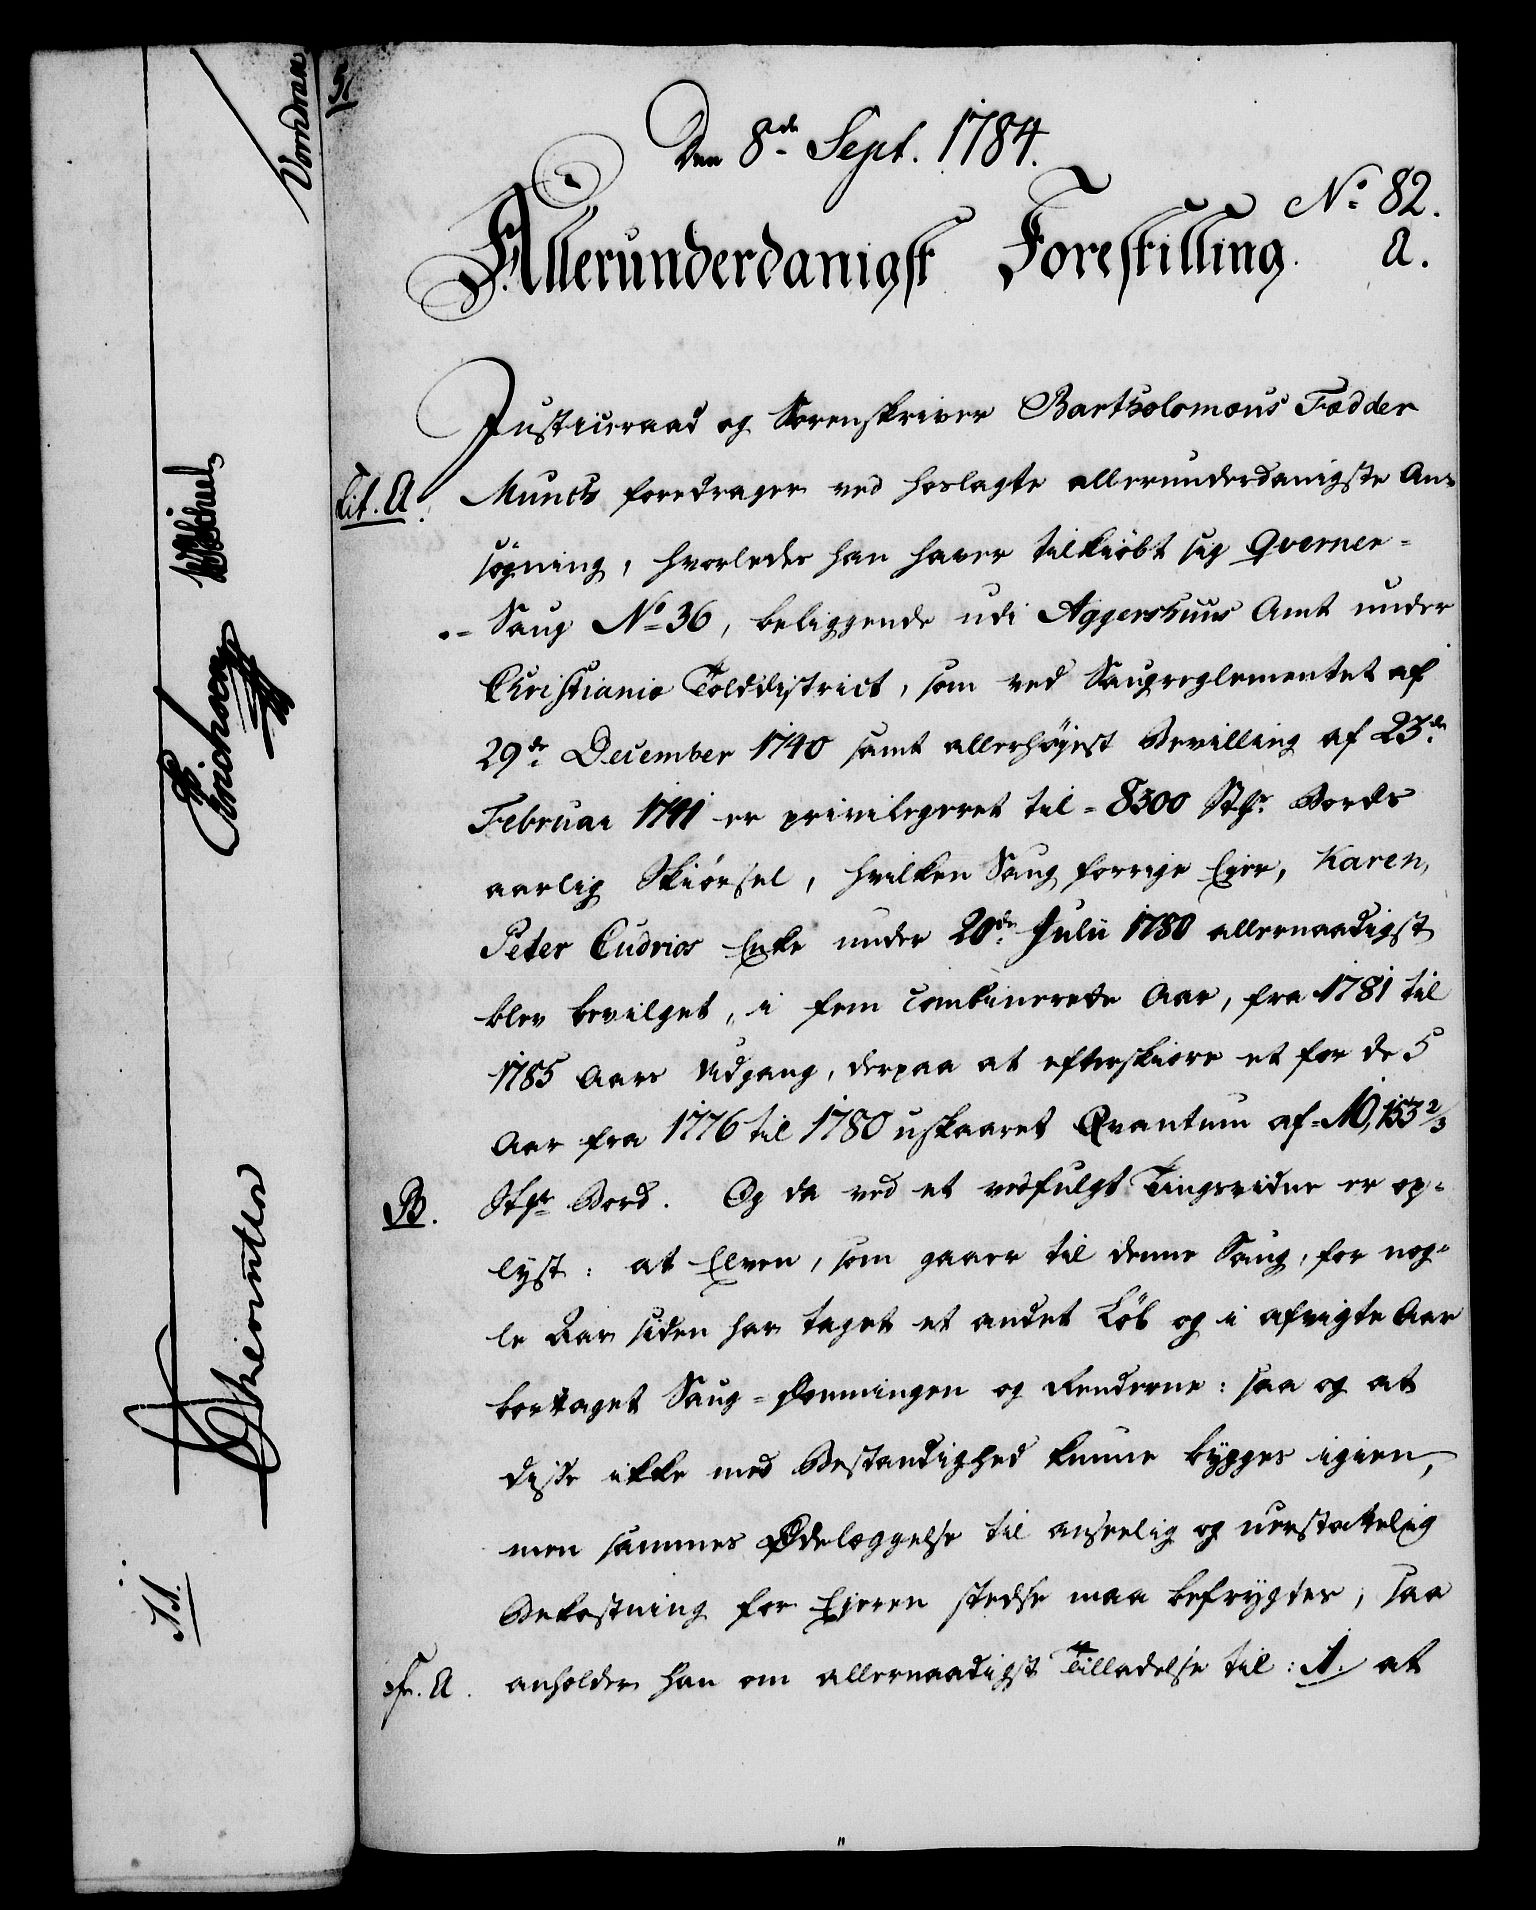 Den 8de Sept. 1784.
No 82.
a.
Allerunderdanigst Forestilling.
Justitsraad og Sorenskriver Bartholomæus Fædder
Lit. a. Munch foredrager ved hoslagte allerunderdanigste An-
søgning, hvorledes han haver tilkiøbt sig Qverner-
- Saug No 36, beliggende udi Aggershuus Amt under
Christiania Tolddistrict, som ved Saugreglementet af
29de December 1740 samt allerhøjest Bevilling af 23de
Februar 1741 er privilegeret til 8300 Stkr Bords
aarlig Skiørsel, hvilken Saug forrige Ejer, Karen,
Peter Cudrios Enke under 20de Julii 1780 allernaadigst
blev bevilget, i fem combinerede Aar, fra 1781 til
1785 Aars Udgang, derpaa at efterskiære et for de 5
Aar fra 1776 til 1780 uskaaret Qvantum af 10,153 2/3
B. Stkr Bord. Og da ved et vedfulgt Tingsvidne er op-
lyst: at Elven, som gaaer til denne Saug, for nog-
le Aar siden har taget et andet Løb og i afvigte Aar
bortaget Saug-Dæmningen og Renderne: saa og at
disse ikke med Bestandighed kunne bygges igien,
men sammes Ødelæggelse til anseelig og uerstattelig
Bekostning for Ejeren stedse maa befrygtes; saa
cfr. a. anholder han om allernaadigst Tilladelse til: 1. at